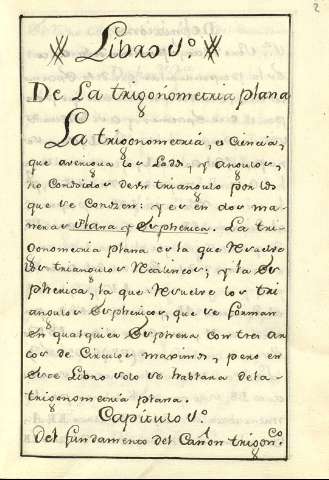 2
Libro 5º.
De La trigonometria plana
La trigonometria, es Ciencia,
que averigua los Lados, y angulos,
no Conosidos deun triangulo por los
que se Conosen: y es en dos ma
neras Plana y Espherica. La tri
gonometria plana es la que Resuelve
los triangulos Rectilineos; y la Es
pherica, la que Resuelve los tri
angulos Esphericos, que se forman
en qualquier Esphera con tres Ar
cos de Circulos maximos, pero en
este Libro solo se hablara dela
trigonometria plana.
Capitulo
Del fundamento del Canon trigonco.